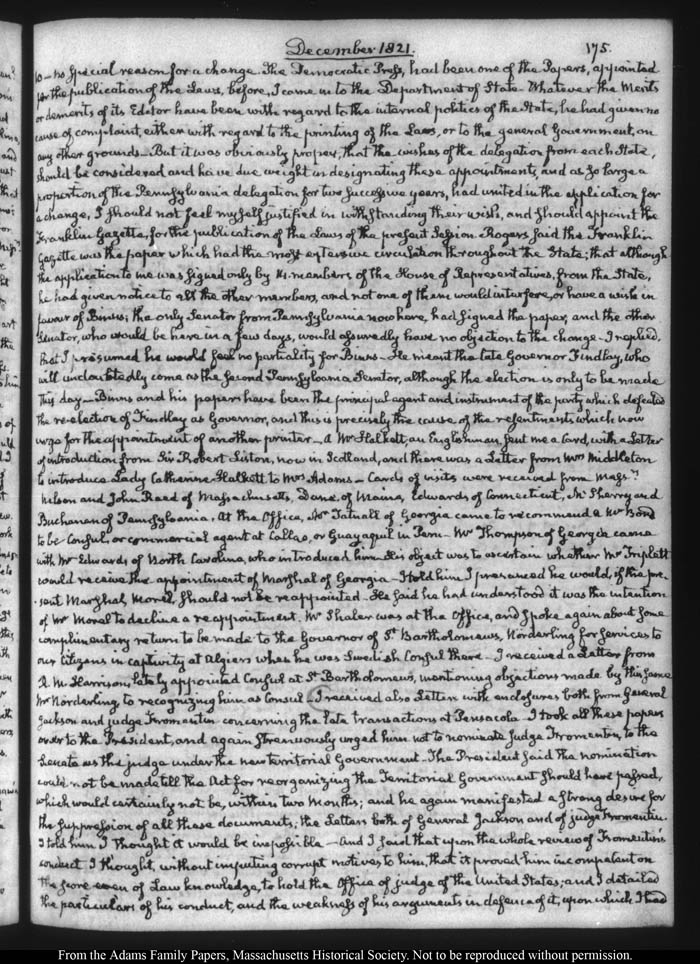 December 1821.
175.
so — no special reason for a change. The Democratic Press, had been one of the Papers, appointed
for the publication of the Laws, before, I came in to the Department of State. Whatever the merits
or demerits of its Editor have been with regard to the internal politics of the State, he had given no
cause of complaint, either with regard to the printing of the Laws, or to the general Government, on
any other grounds — But it was obviously proper, that the wishes of the delegation from each State,
should be considered and have due weight in designating these appointments, and as so large a
proportion of the Pennsylvania delegation for two successive years, had united in the application for
a change, I should not feel myself justified in withstanding their wish, and should appoint the
Franklin Gazette, for the publication of the Laws of the present Session. Rogers said the Franklin
Gazette was the paper which had the most extensive circulation throughout the State; that although
the application to me was signed only by 14. members of the House of Representatives, from the State,
he had given notice to all the other members, and not one of them would interfere, or have a wish in
favour of Binns; the only Senator from Pennsylvania now here, had signed the paper, and the other
Senator, who would be here in a few days, would assuredly have no objection to the change — I replied,
that I presumed he would feel no partiality for Binns — He meant the late Governor Findlay, who
will undoubtedly come as the second Pennsylvania Senator, although the election is only to be made
this day — Binns and his papers have been the principal agent and instrument of the party which defeated
the re-election of Findlay as Governor, and this is precisely the cause of the resentments which now
urge for the appointment of another printer — A Mr Halkett an Englishman, sent me a Card, with a Letter
of introduction from Sir Robert Liston, now in Scotland, and there was a Letter from Mrs Middleton
to introduce Lady Catherine Halkett to Mrs Adams — Cards of visits were received from Messrs
Nelson and John Reed of Massachusetts, Dane, of Maine, Edwards of Connecticut, McSherry and
Buchanan of Pennsylvania. At the Office, Mr Tatnall of Georgia came to recommend a Mr
to be Consul, or commercial agent at Callao, or Guayaquil in Peru — Mr Thompson of Georgia came
with Mr Edwards of North Carolina, who introduced him — His object was to ascertain whether Mr Triplett
would receive the appointment of Marshal of Georgia — I told him I presumed he would, if the pre-
sent Marshal, Morel, should not be reappointed — He said he had understood it was the intention
of Mr Morel to decline a reappointment. Mr Shaler was at the Office, and spoke again about some
complimentary return to be made to the Governor of St Bartholomews, Norderling for services to
our citizens in captivity at Algiers when he was Swedish Consul there — I received a Letter from
R. M. Harrison, lately appointed Consul at St Bartholomews, mentioning objections made by this same
Mr Norderling, to recognizing him as Consul — I received also Letters with enclosures both from General
Jackson and judge Fromentin concerning the late transactions at Pensacola — I took all these papers
over to the President, and again strenuously urged him not to nominate Judge Fromentin, to the
Senate as the judge under the new territorial Government — The President said the nomination
could not be made till the Act for reorganizing the Territorial Government should have passed,
which would certainly not be, within two Months; and he again manifested a strong desire for
the suppression of all these documents; the Letters both of General Jackson and of judge Fromentin.
I told him I thought it would be impossible — And I said that upon the whole review of Fromentin's
conduct I thought, without imputing corrupt motives to him, that it proved him incompetent on
the score even of Law knowledge, to hold the Office of judge of the United States; and I detailed
the particulars of his conduct, and the weakness of his arguments in defence of it, upon which I had
From the Adams Family Papers, Massachusetts Historical Society. Not to be reproduced without permission.